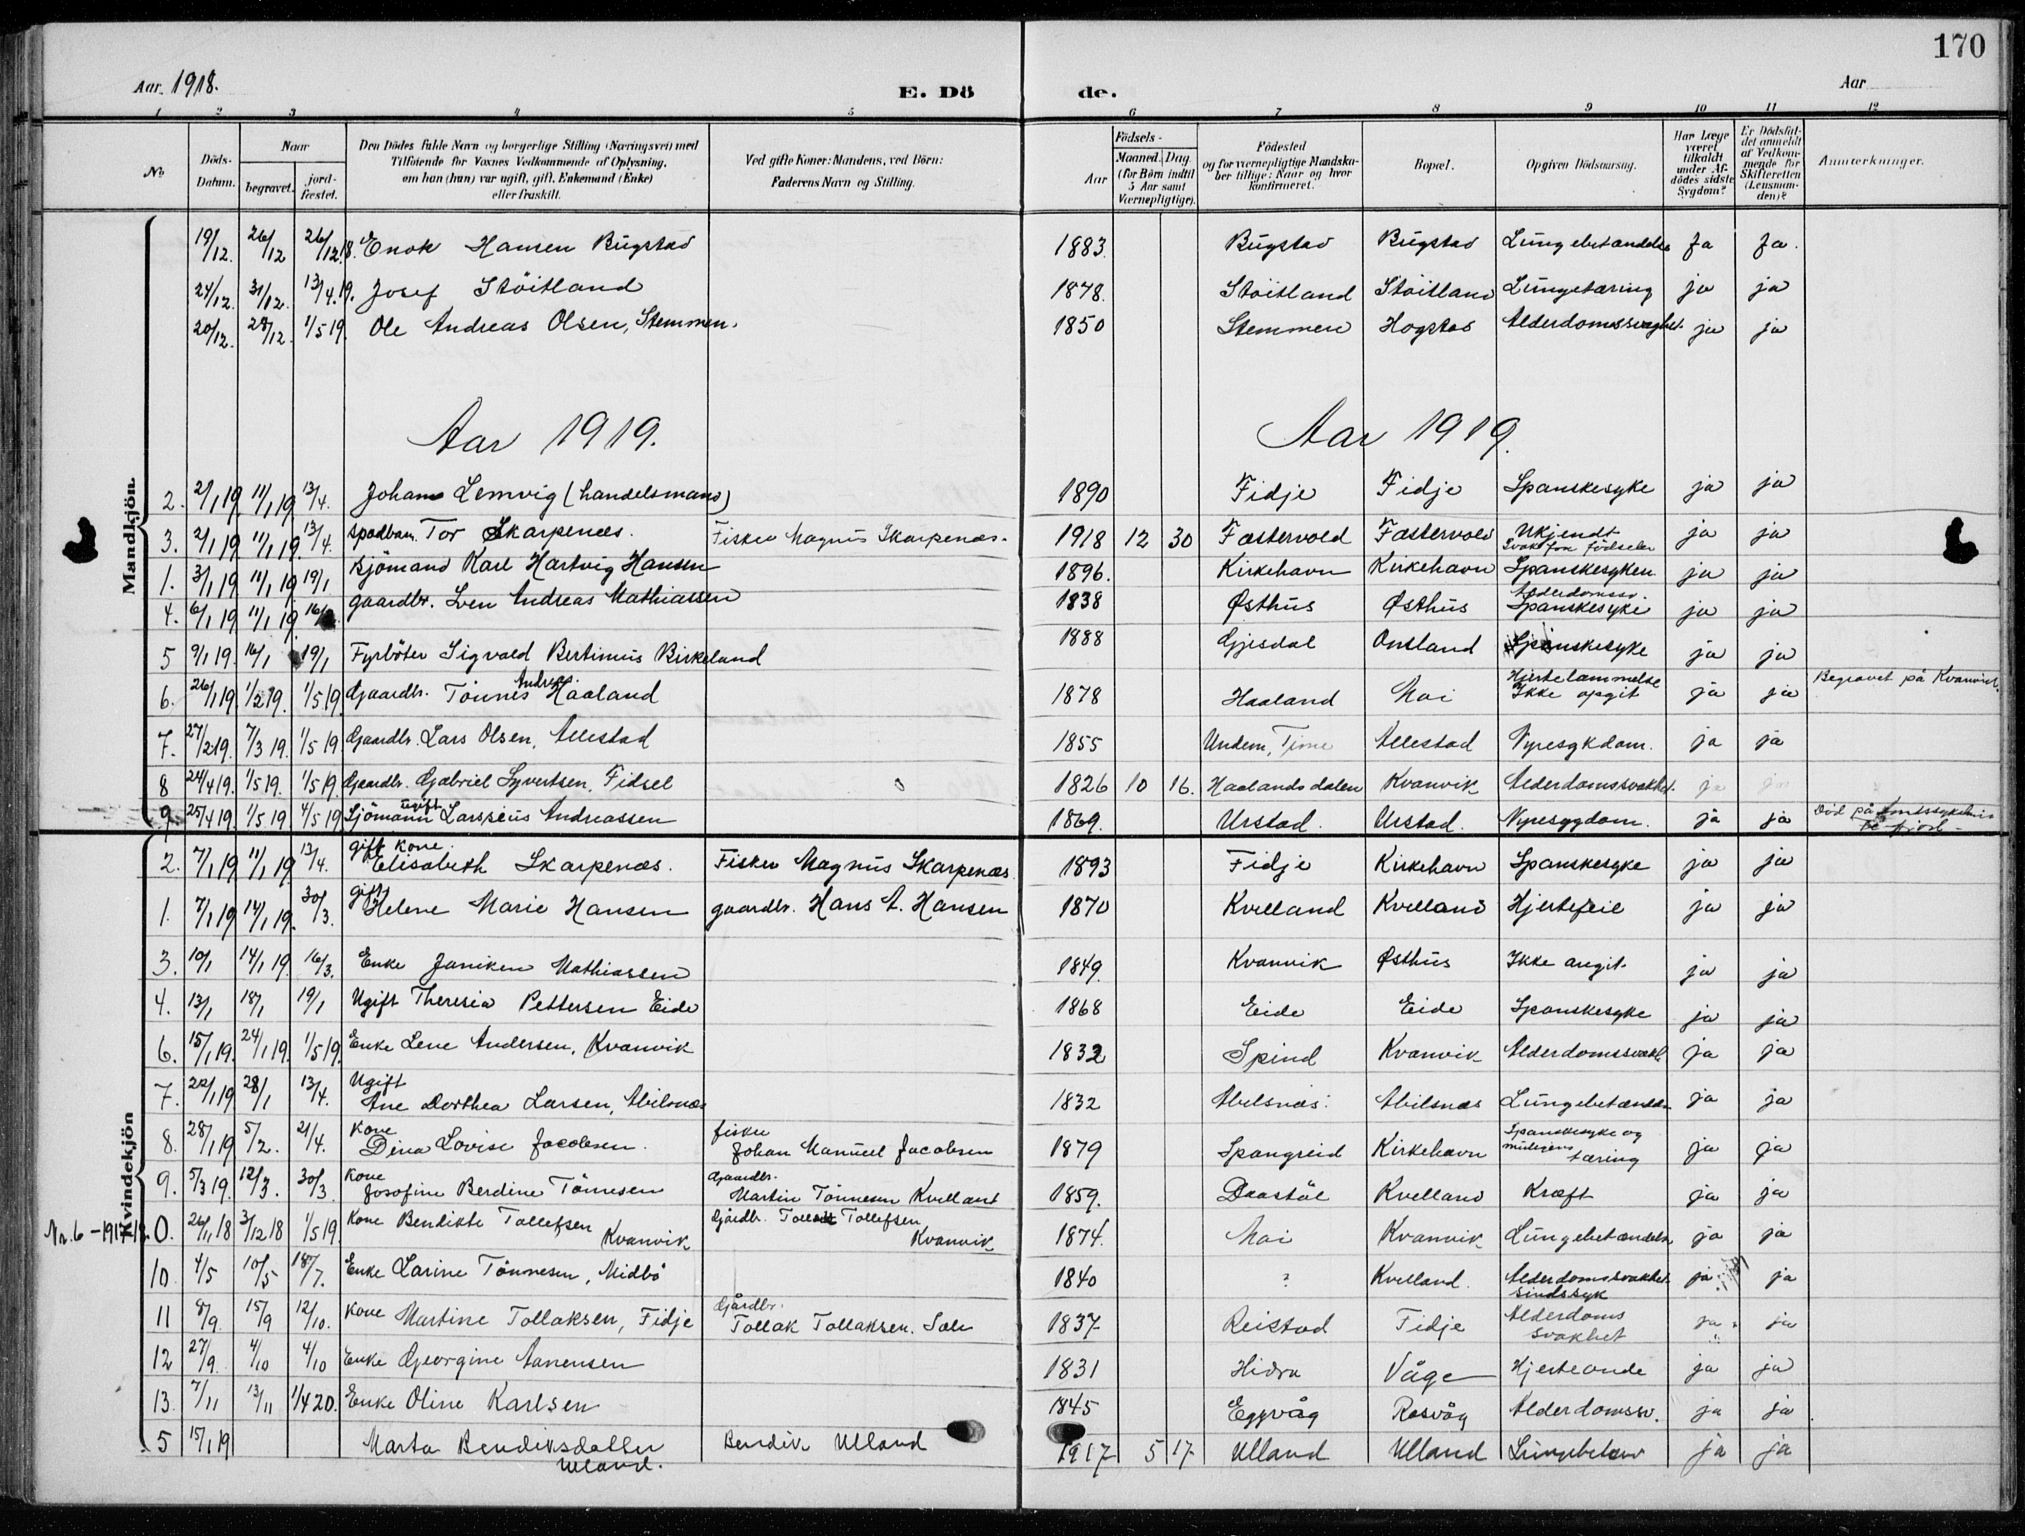 170
Aar 1918.
E. Dö de.
Aar
1 2 3 4 5 6 7 8 9 10 11 12
No
Döds-Datum.
Naar
begravet.
jord-fæstet.
Den Dödes fulde Navn og borgerlige Stilling (Næringsvei) med
Tilföiende for Voxnes Vedkommende af Oplysning,
om han (hun) var ugift, gift, Enkemand (Enke)
eller fraskilt.
Ved gifte Koner: Mandens, ved Börn:
Faderens Navn og Stilling.
Födsels-
Aar
Maaned. Dag
(for Börn indtil
5 Aar samt
Værnepligtige).
Födested
og for værnepligtige Mandska-
ber tillige: Naar og hvor
konfirmeret.
Bopæl.
Opgiven Dödsaarsag.
Har Læge
været
tilkaldt
under Af-
dödes sidste
Sygdom?
Er Dödsfal-
det anmeldt
af Vedkom-
mende for
Skifteretten
(Lensman-
den)?
Anmærkninger.
Mandkjön.
19/12. 26/12 26/12.18. Enok Hansen Bugstad 1883. Bugstad Bugstad Lungebetændelse Ja Ja.
24/12. 31/12. 13/4.19. Josef Stöitland 1878. Stöitland Stöitland Lungetæring ja ja
20/12. 28/12. 1/5 19. Ole Andreas Olsen, Stemmen. 1850 Stemmen Hogstad Alderdomssvaghet. ja ja
Aar 1919. Aar 1919.
2. 2/1 19 11/1 19 13/4. Johan Lemvig (handelsmand) 1890 Fidje Fidje Spanskesyke ja ja
3. 2/1 19 11/1 19. 13/4. spædbarn Tor Skarpenæs. Fisker Magnus Skarpenæs. 1918 12 30 Fæstervold Fæstervold Ukjendt ja ja
Svak fra födselen
1. 3/1 19 11/1 19 19/1 Sjömand Karl Hartvig Hansen 1896. Kirkehavn Kirkehavn Spanskesyken ja ja
4. 6/1 19 11/1 19 gaardbr. Sven Andreas Mathiassen 1838 Østhus Østhus Alderdomssv. Spanskesyke ja ja
5 9/1 19. 16/1 19/1 Fyrböter Sigvald Bertinius Birkeland 1888 Gjesdal Ontland Spanskesyke ja ja
6. 26/1 19. 1/2 19. 1/5 19. Gaardbr. Tönnes Andreas Haaland 1878 Haaland Moi Hjertelammelse Ikke opgit ja ja Begravet på Kvanvik.
7. 27/2 19. 7/3 19. 1/5 19 Gaardbr. Lars Olsen, Allestad 1855 Undem, Tjome Allestad Nyresykdom. ja ja
8 24/4 19. 1/5 19. 1/5 19. Gaardbr. Gabriel Syvertsen, Fidsel 1826 10 16. Haalandsdalen Kvanvik Alderdomssvakhet. ja ja
9. 25/4 19. 1/5 19 4/5 19 ugift Sjömann Larsseus Andreassen 1869. Urstad. Urstad. Nyresygdom. ja ja Död på Amtssykehus
Kvindekjön
2. 7/1 19 11/1 19. 13/4. gift kone. Elisabeth Skarpenæs. Fisker Magnus Skarpenæs 1893 Fidje Kirkehavn Spanskesyke ja ja
1. 7/1 19 14/1 19. 30/3. gift Helene Marie Hansen gaardbr. Hans A. Hansen 1870 Kvelland Kvelland Hjertefeil ja ja
3. 10/1 14/1 19. 16/3. Enke Janiken Mathiassen 1849. Kvanvik Østhus Ikke angit. ja ja
4. 13/1 18/1 19/1 Ugift Theresia Pettersen Eide 1868 Eide Eide Spanskesyke ja ja
6. 15/1 19. 24/1 19. 1/5 19. Enke Lene Andersen, Kvanvik 1832 Spind Kvanvik Alderdomssvakh. ja ja
7. 22/1 19 28/1 13/4. Ugift Ane Dorthea Larsen, Abilsnæs 1832 Abelsnæs. Abilsnæs Lungebetændelse ja ja
8. 28/1 19 5/2. 21/4. Kone Dina Lovise Jacobsen. fisker Johan Manuel Jacobsen 1879 Spangreid Kirkehavn Spanskesyke og muligens tæring ja ja
9. 5/3 19. 12/3. 30/3. Kone Josofine Berdine Tönnesen Gaardbr. Martin Tönnesen Kvelland 1859. Daastöl Kvelland Kræft ja ja
Nr. 6 - 1917-18. 0. 26/11 18 3/12 18 1/5 19. Kone Bendikte Tollefsen Kvanvik Gårdbr. Tollak Tollefsen Kvanvik 1874. Moi Kvanvik Lungebetændelse ja ja
10 4/5 10/5 18/7. Enke Larine Tönnesen, Midbö 1840 ? Kvelland. Alderdomssvakhet. ja ja
sindssyk
11 8/9. 15/9 12/10. Kone Martine Tollaksen, Fidje Gårdbr. Tollak Tollaksen. Sole 1837. Reistad Fidje Alderdoms svakhet ja ja
12 27/9. 4/10 4/10 Enke Georgine Aanensen 1831 Hidra Våge Hjerteonde ja ja
13. 7/11 13/11 1/4 20. Enke Oline Karlsen 1845 Eggvåg Rasvåg Alderdomssv. ja ja
5 15/1 19 Marta Bendiksdatter Ulland. Bendik Ulland 1917 5 17 Ulland Ulland Lungebetæn ja ja